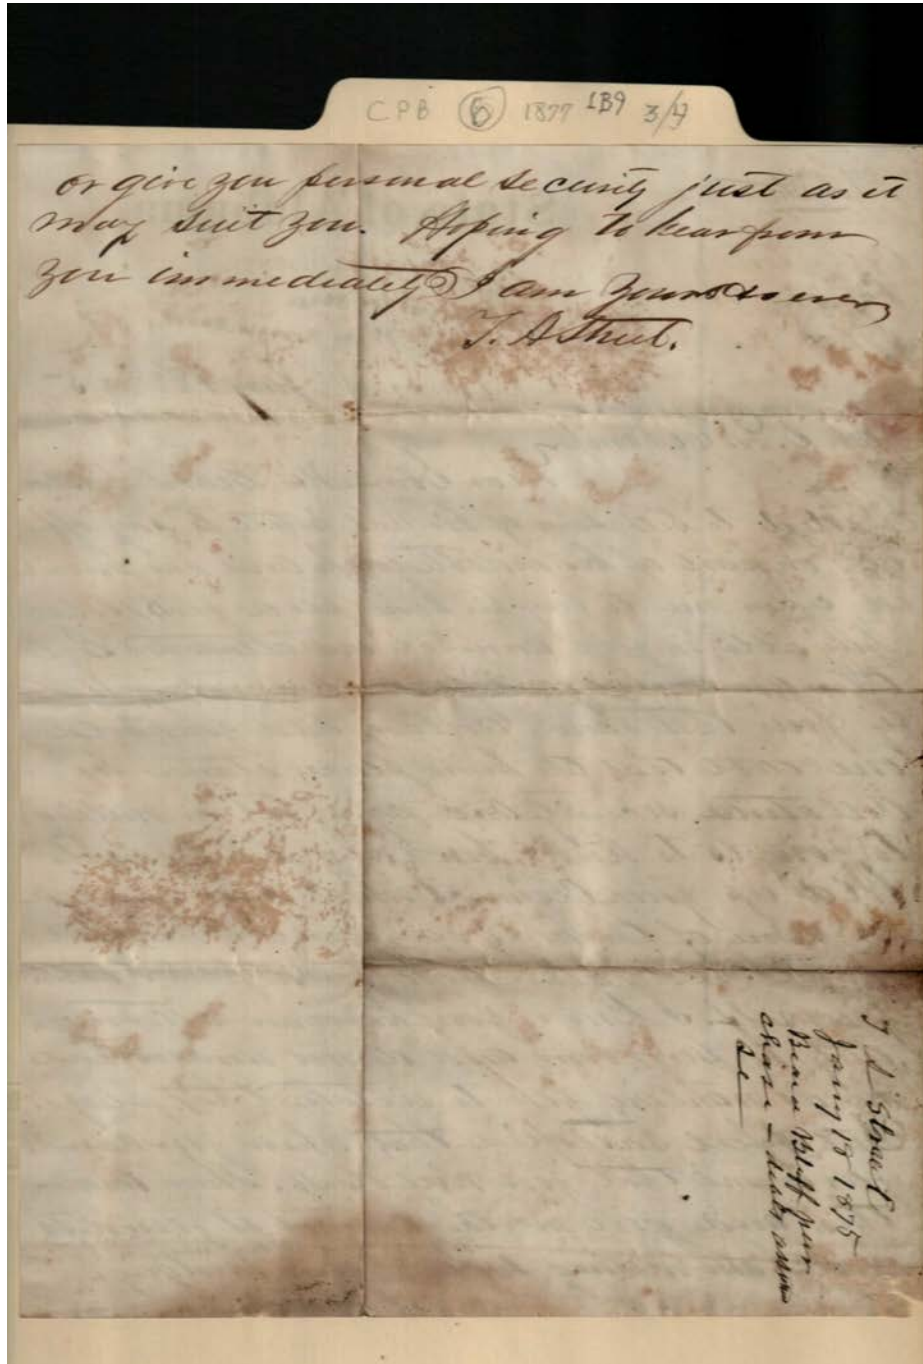 CPB 6 1877 1B9 3/4
or give you personal security just as it
may suit you. Hoping to hear from
you immediately I am yours as ever
T. A Street.
T A Street
Jany 18 1875
Bluff pur
chase - debts assum